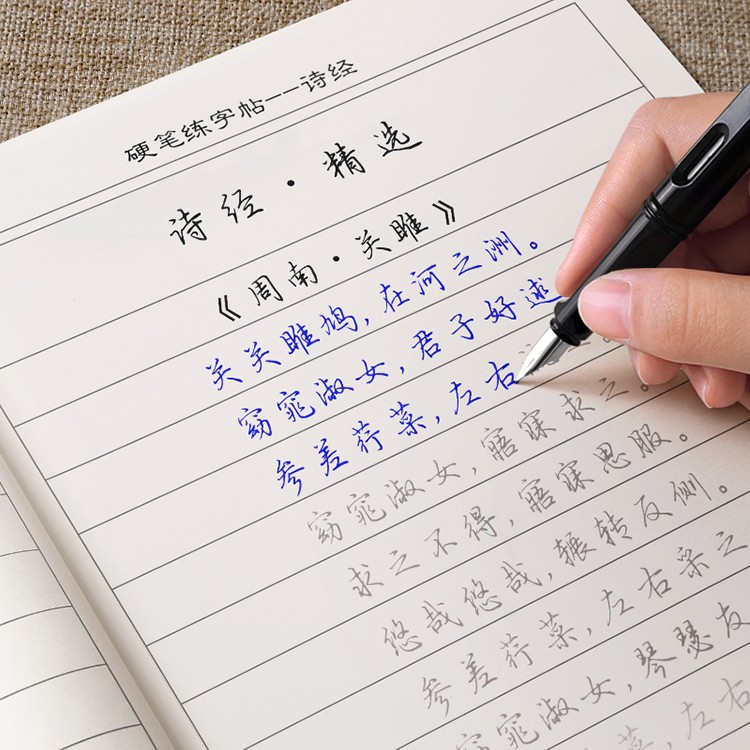 硬笔练字帖--诗经
诗经·精选
《周南·关雎》
关关雎鸠,在河之洲。
窈窕淑女,君子好逑
参差荇菜,左右流
窈窕淑女,寤寐求之。
求之不得,寤寐思服。
悠哉悠哉,辗转反侧。
参差荇菜,左右采之
窈窕淑女,琴瑟友
菜,左右